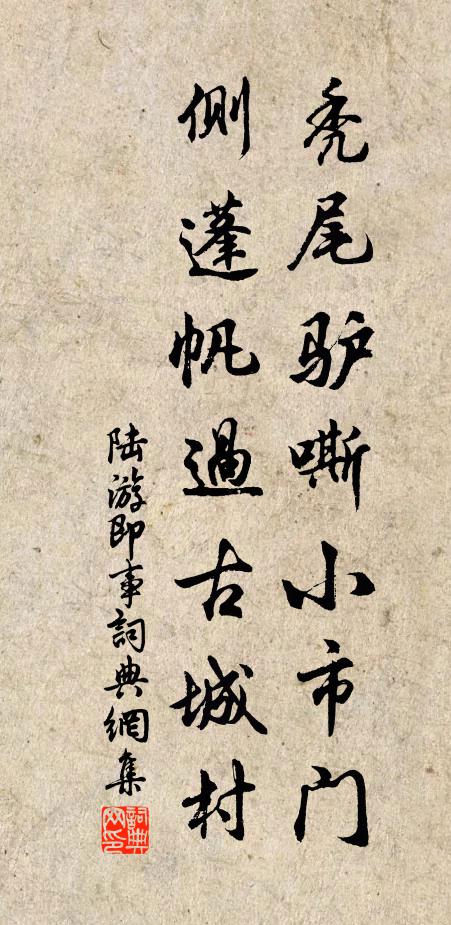 秃尾驴嘶小市门
侧蓬帆過古城村
陆游即事詞典網集
詞典网印